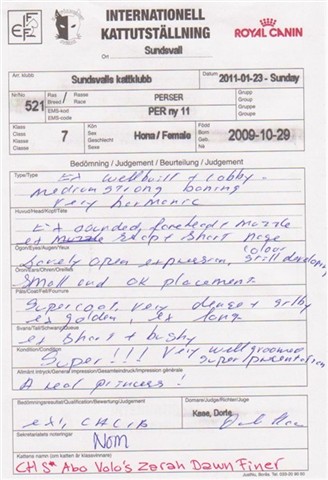 INTERNATIONELL
KATTUTSTÄLLNING
ROYAL CANIN
Ort Sundsvall
Arr. klubb Sundsvalls kattklubb Datum 2011-01-23 - Sunday
Nr/No 521 Ras / Rasse Breed / Race PERSER Grupp Group Gruppe Groupe
EMS-kod EMS-code PER ny 11
Klass Class Klasse Classe 7 Kön Sex Geschlecht Sexe Hona / Female Född Born Geb. Né 2009-10-29
Bedömning / Judgement / Beurteilung / Jugement
Type/Typ
Ex wellbuilt + cobby
medium strong boning
very harmonic
Huvud/Head/Kopf/Tête
Ex rounded, forehead + muzzle
ex stop + short nose
Ögon/Eyes/Augen/Yeux
colour
lovely open expression, still develop
Öron/Ears/Ohren/Oreilles
Small and ok placement
Päls/Coat/Fell/Fourrure
Supercoat, very dense + silky
ex golden, ex long
Svans/Tail/Schwanz/Queue
ex short + bushy
Kondition/Condition
Super!!! Very well groomed
super presentation
Allmänt intryck/General impression/Gesamteindruck/Impression générale
A real princess!
Bedömningsresultat/Qualification/Bewertung/Jugement Domare/Judge/Richter/Juge
Kaae, Dorte
ex1, CACIB
Sekretariatets noteringar
NOM
Kattens namn (om katten är klassvinnare)
CH S* Abo Volo's Zarah Dawn Finer